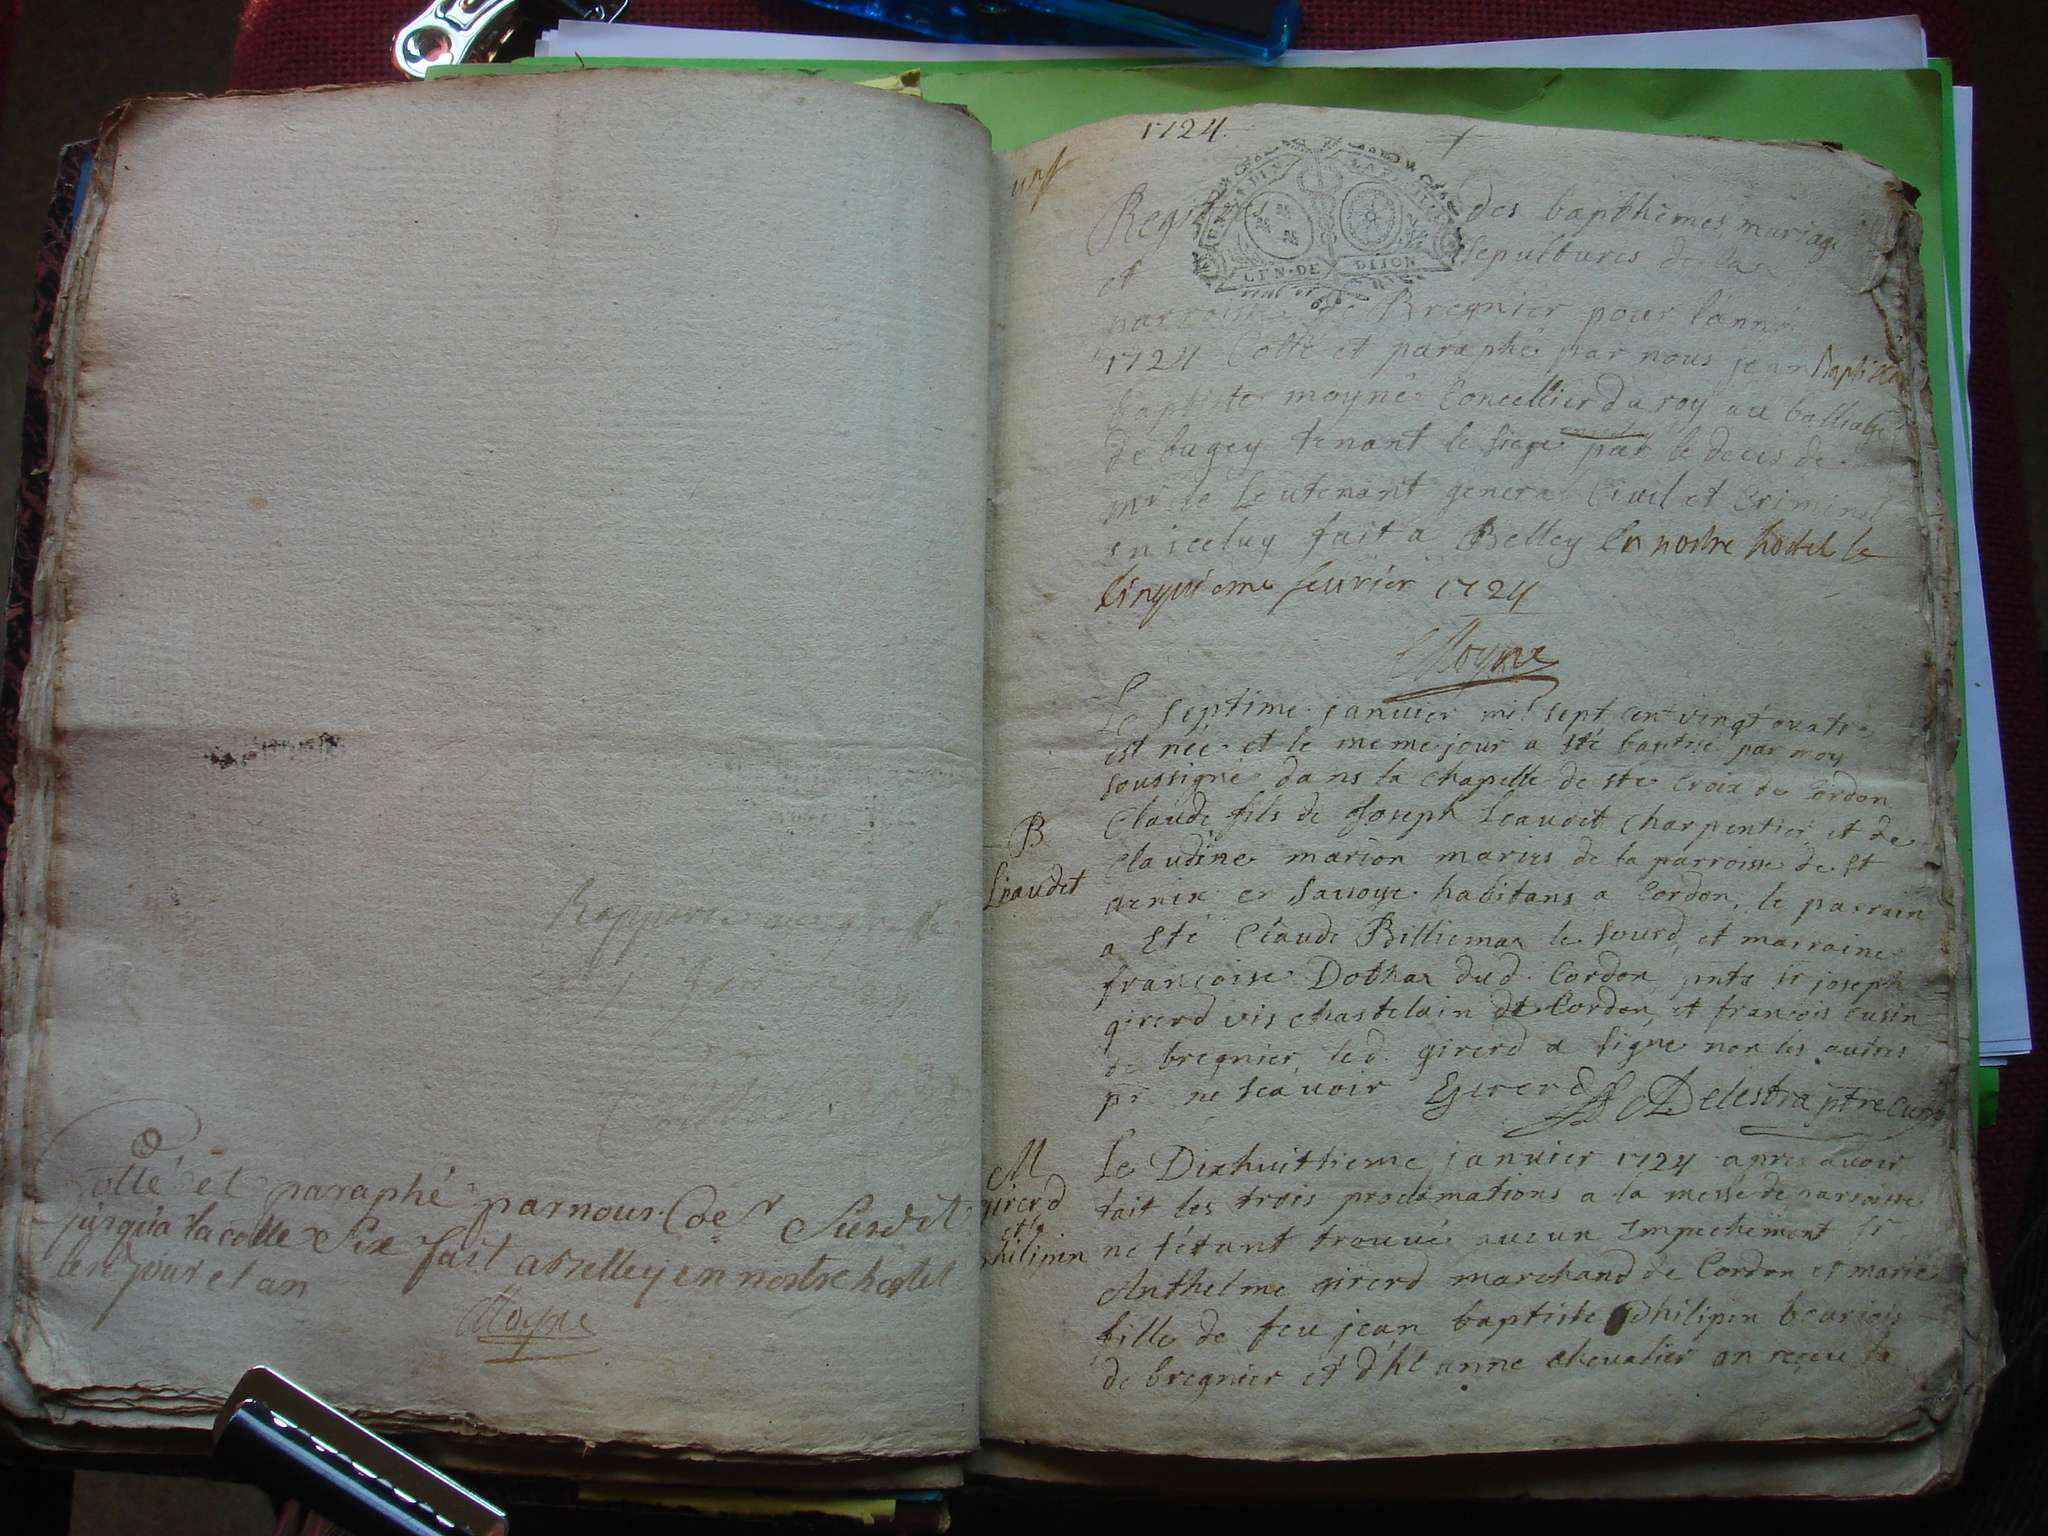 Rapporté
Cotté et paraphé par nous Con.er Susdit
jusqu'a la cotte Six fait a belley en nostre hostel
lesd jour et an
Moyne
1724.
GEN·DE DIJON
Registre des bapthêmes mariage
et sepultures de la
parroisse de Bregnier pour l'anné
1724 Cotté et paraphé par nous jean Baptiste
baptiste moyne Concellier du roy au balliage
de bugey tenant le siege par le deces de
mr le Leutenant general Civil et Criminel
en iceluy fait a Belley En nostre hostel le
Cinquieme feurier 1724
Moyne
Le septime januier mil sept cent vingt quatre
est née et le meme jour a été baptisé par moy
soussigné dans la chapelle de ste Croix de Cordon
B
Leaudet
Claude fils de Joseph Leaudet charpentier et de
claudine marion maries de la parroisse de St
genix en Sauoye habitans a Cordon, le parrain
a Eté Claude Billiemaz le sourd, et marraine
françoise Dothaz dud. Cordon, pnts sr joseph
girerd vis chastelain de Cordon, et francois cusin
de bregnier, led. girerd a signé non les autres
pr ne scauoir EGirerd Delestra ptre Curé
M
girerd
et
philipin
Le Dixhuittieme januier 1724 apres avoir
fait les trois proclamations a la messe de parroisse
ne s'étant trouué aucun Empechement sr
Anthelme girerd marchand de Cordon et marie
fille de feu jean baptiste philipin bourjois
de bregnier et d'ht anne cheualier on reçeu la